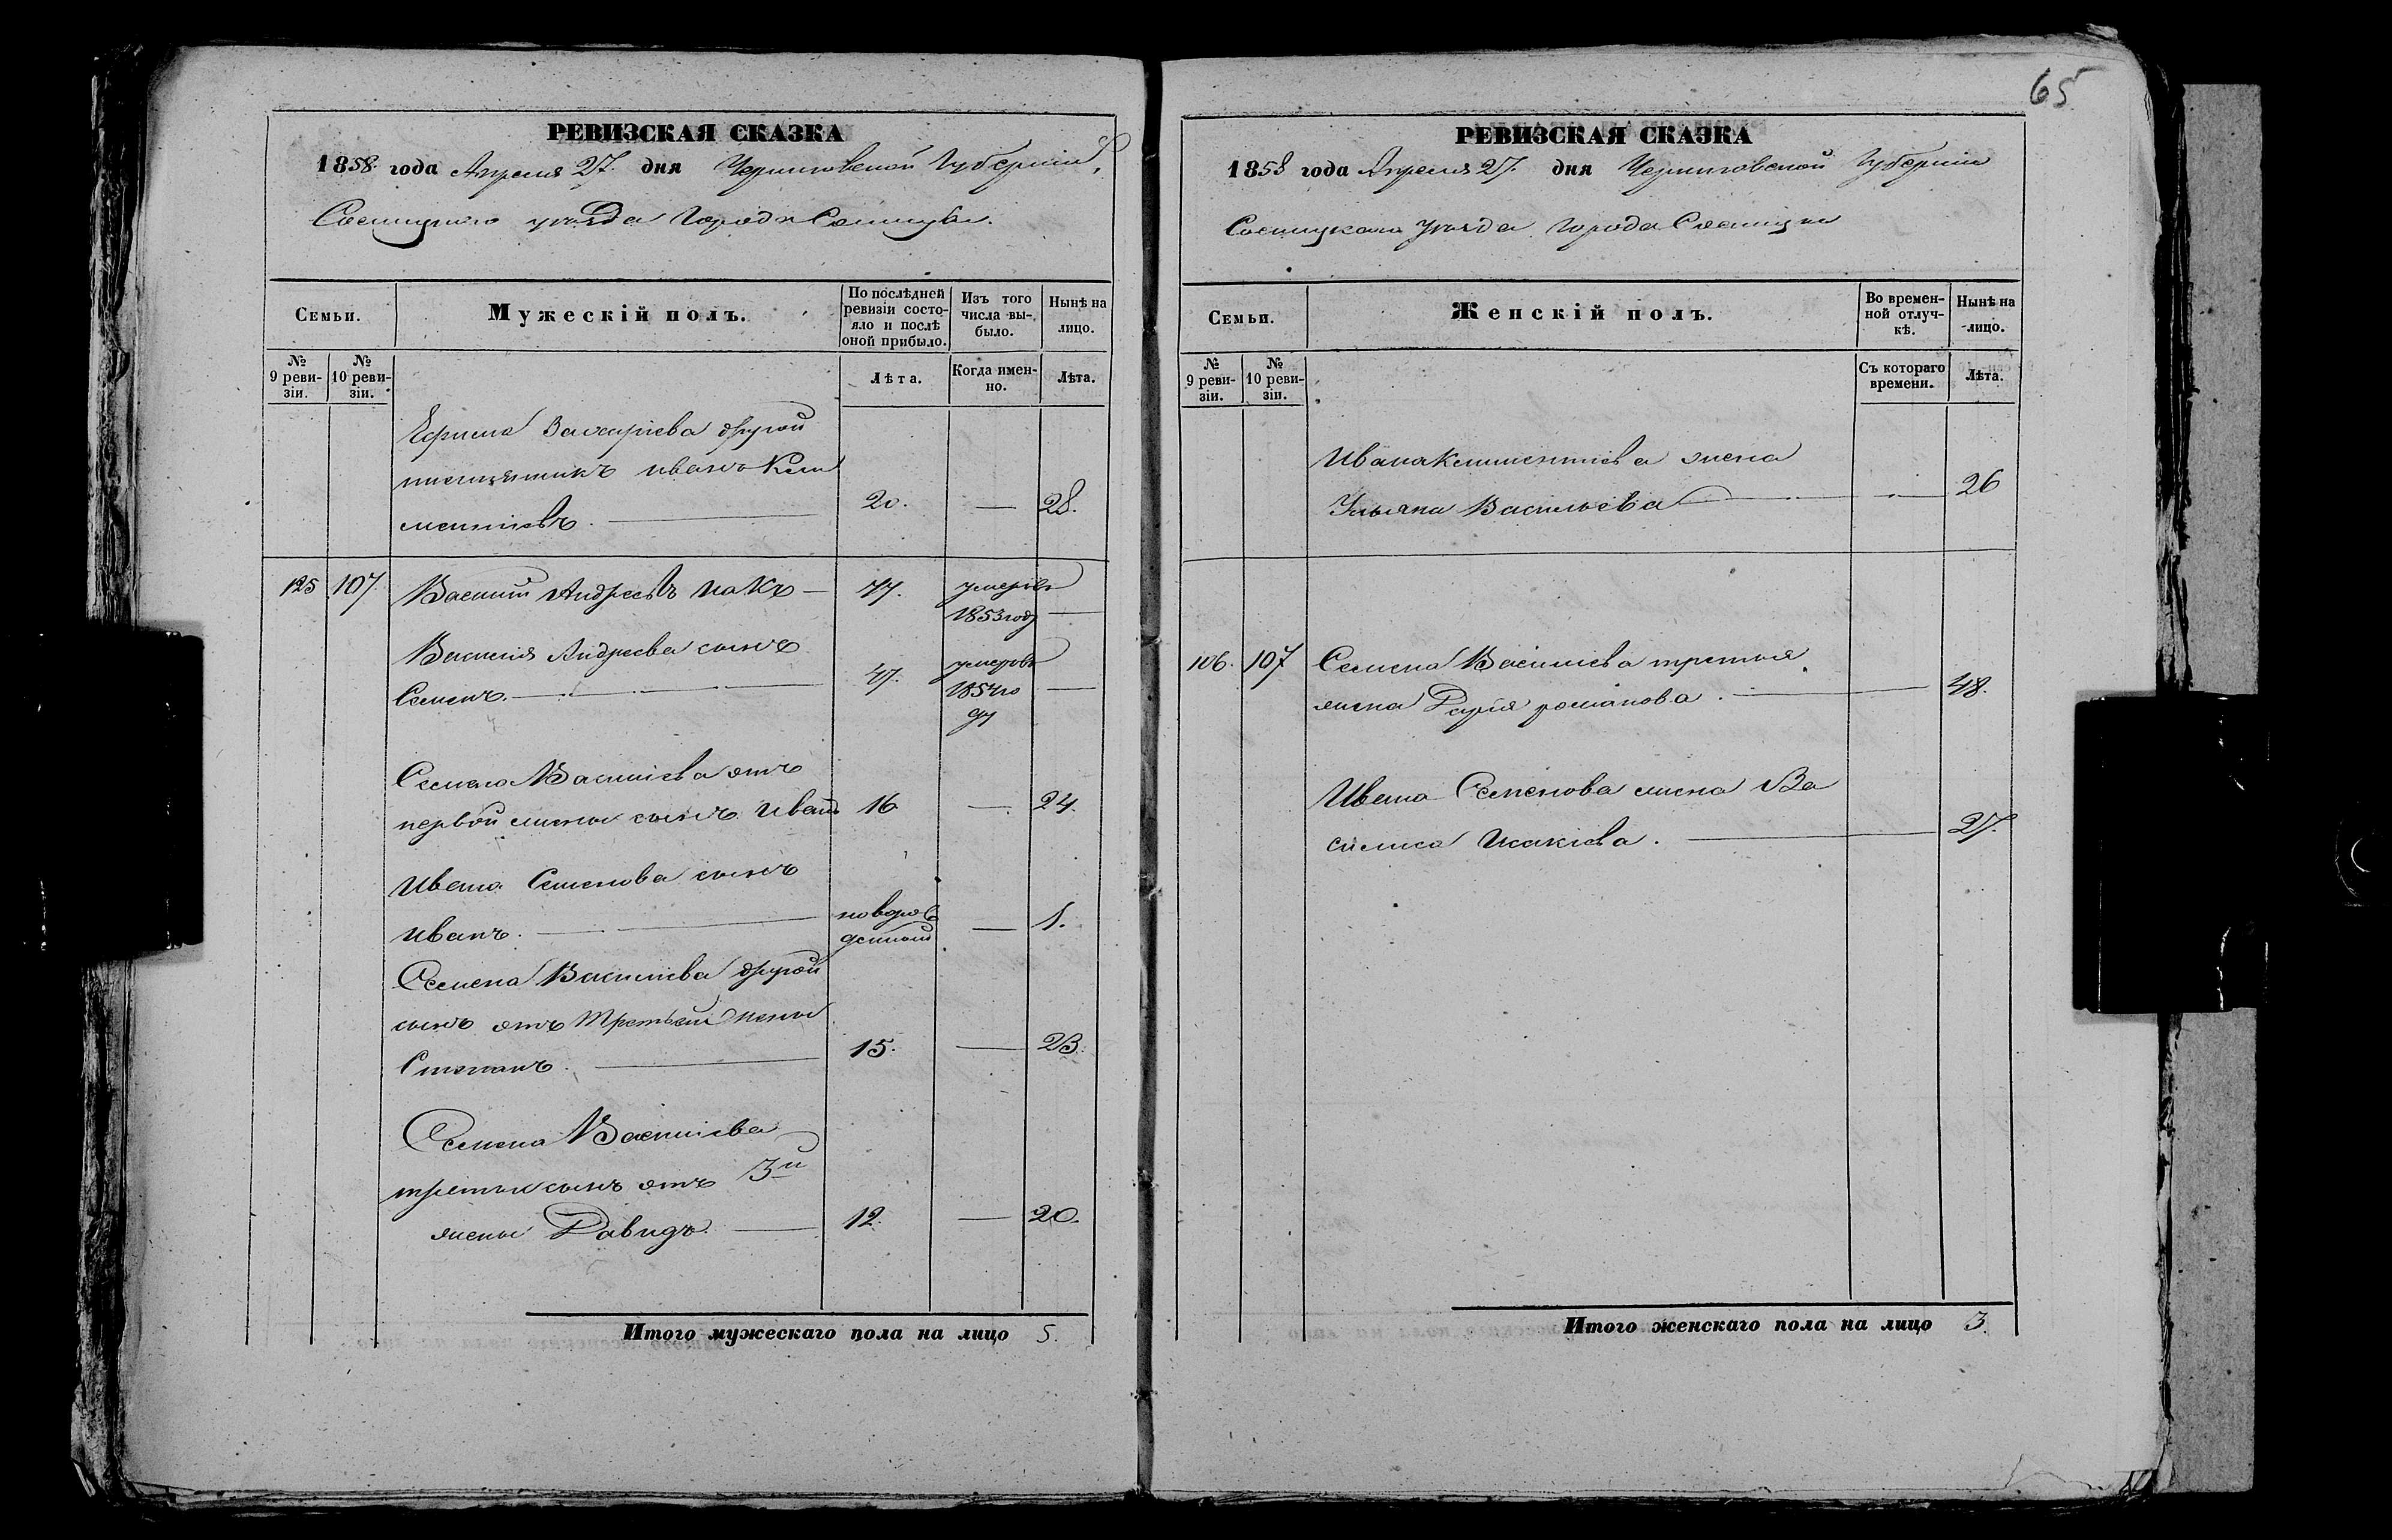 65
РЕВИЗСКАЯ СКАЗКА
1858 года Апреля 27. дня Черниговской Губерніи,
Сосницкого уѣзда Города Сосницы.
Семьи.
Мужескій полъ.
По послѣдней ревизіи состояло и послѣ оной прибыло.
Изъ того числа выбыло.
Нынѣ на лицо.
№ 9 ревизіи.
№ 10 ревизіи.
Лѣта.
Когда именно.
Лѣта.
Ефима Захаріева другой
племянникъ Иванъ Кли
ментіевъ. 20. — 28.
125 107. Василій Андреевъ Исакъ — 77. умеръ въ
1853 году —
Василія Андреева сынъ
Семенъ. 47. умеръ въ
1854 го
ду —
Семена Василіева отъ
первой жены сынъ Иванъ 16 — 24.
Ивана Семенова сынъ
Иванъ. новорож
денный — 1.
Семена Василіева другой
сынъ отъ третьей жены
Степанъ. 15. — 23.
Семена Василіева
третій сынъ отъ 3й
жены Давидъ. 12. — 20.
Итого мужескаго пола на лицо 5.
РЕВИЗСКАЯ СКАЗКА
1858 года Апреля 27. дня Черниговской Губерніи
Сосницкаго Уѣзда Города Сосницы
Семьи.
Женскій полъ.
Во временной отлучкѣ.
Нынѣ на лицо.
№ 9 ревизіи.
№ 10 ревизіи.
Съ котораго времени.
Лѣта.
Ивана Климентіева жена
Ульяна Васильева — 26
106. 107 Семена Василіева третья
жена Дарія Романова. 48.
Ивана Семенова жена Ва
силиса Исакіева. 27.
Итого женскаго пола на лицо 3.